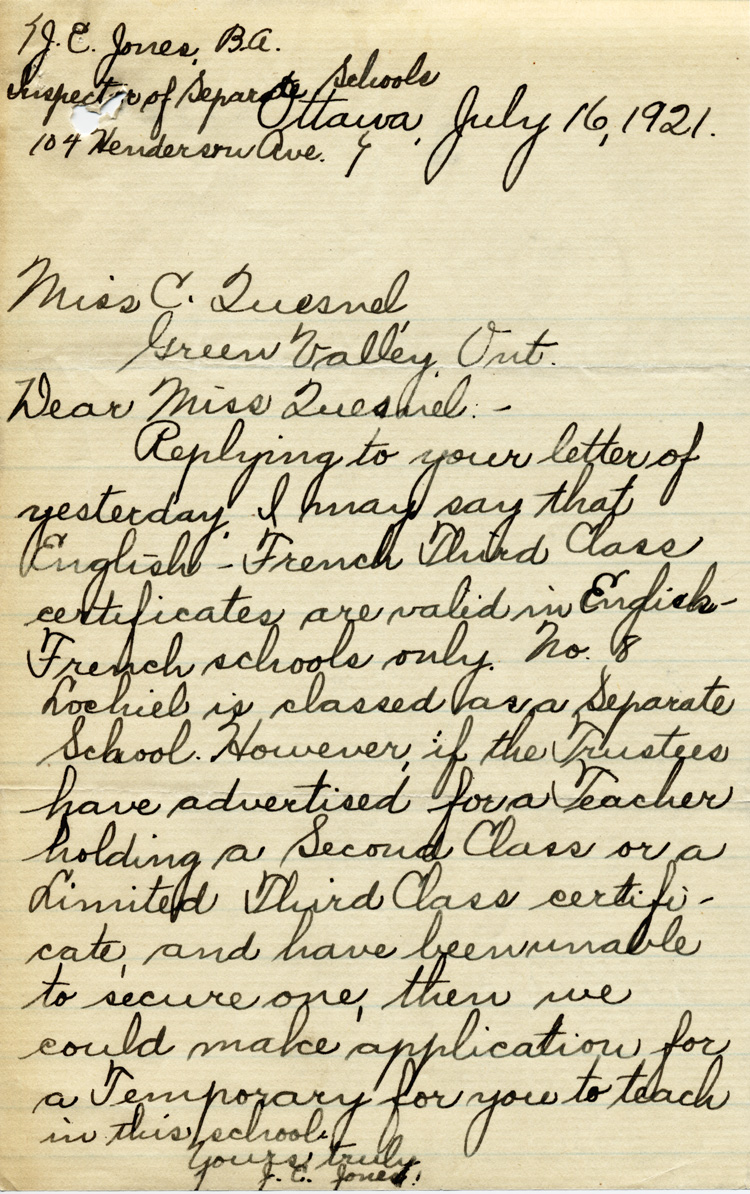 J. E. Jones, B.A.
Inspector of Separate Schools
Ottawa, July 16, 1921.
104 Henderson Ave.
Miss C. Quesnel,
Green Valley, Ont.
Dear Miss Quesnel:-
Replying to your letter of
yesterday, I may say that
English-French Third Class
certificates are valid in English-
French schools only. No. 8
Lochiel is classed as a Separate
School. However, if the Trustees
have advertised for a Teacher
holding a Second Class or a
Limited Third Class certifi-
cate, and have been unable
to secure one, then we
could make application for
a Temporary for you to teach
in this school.
Yours truly,
J. E. Jones.